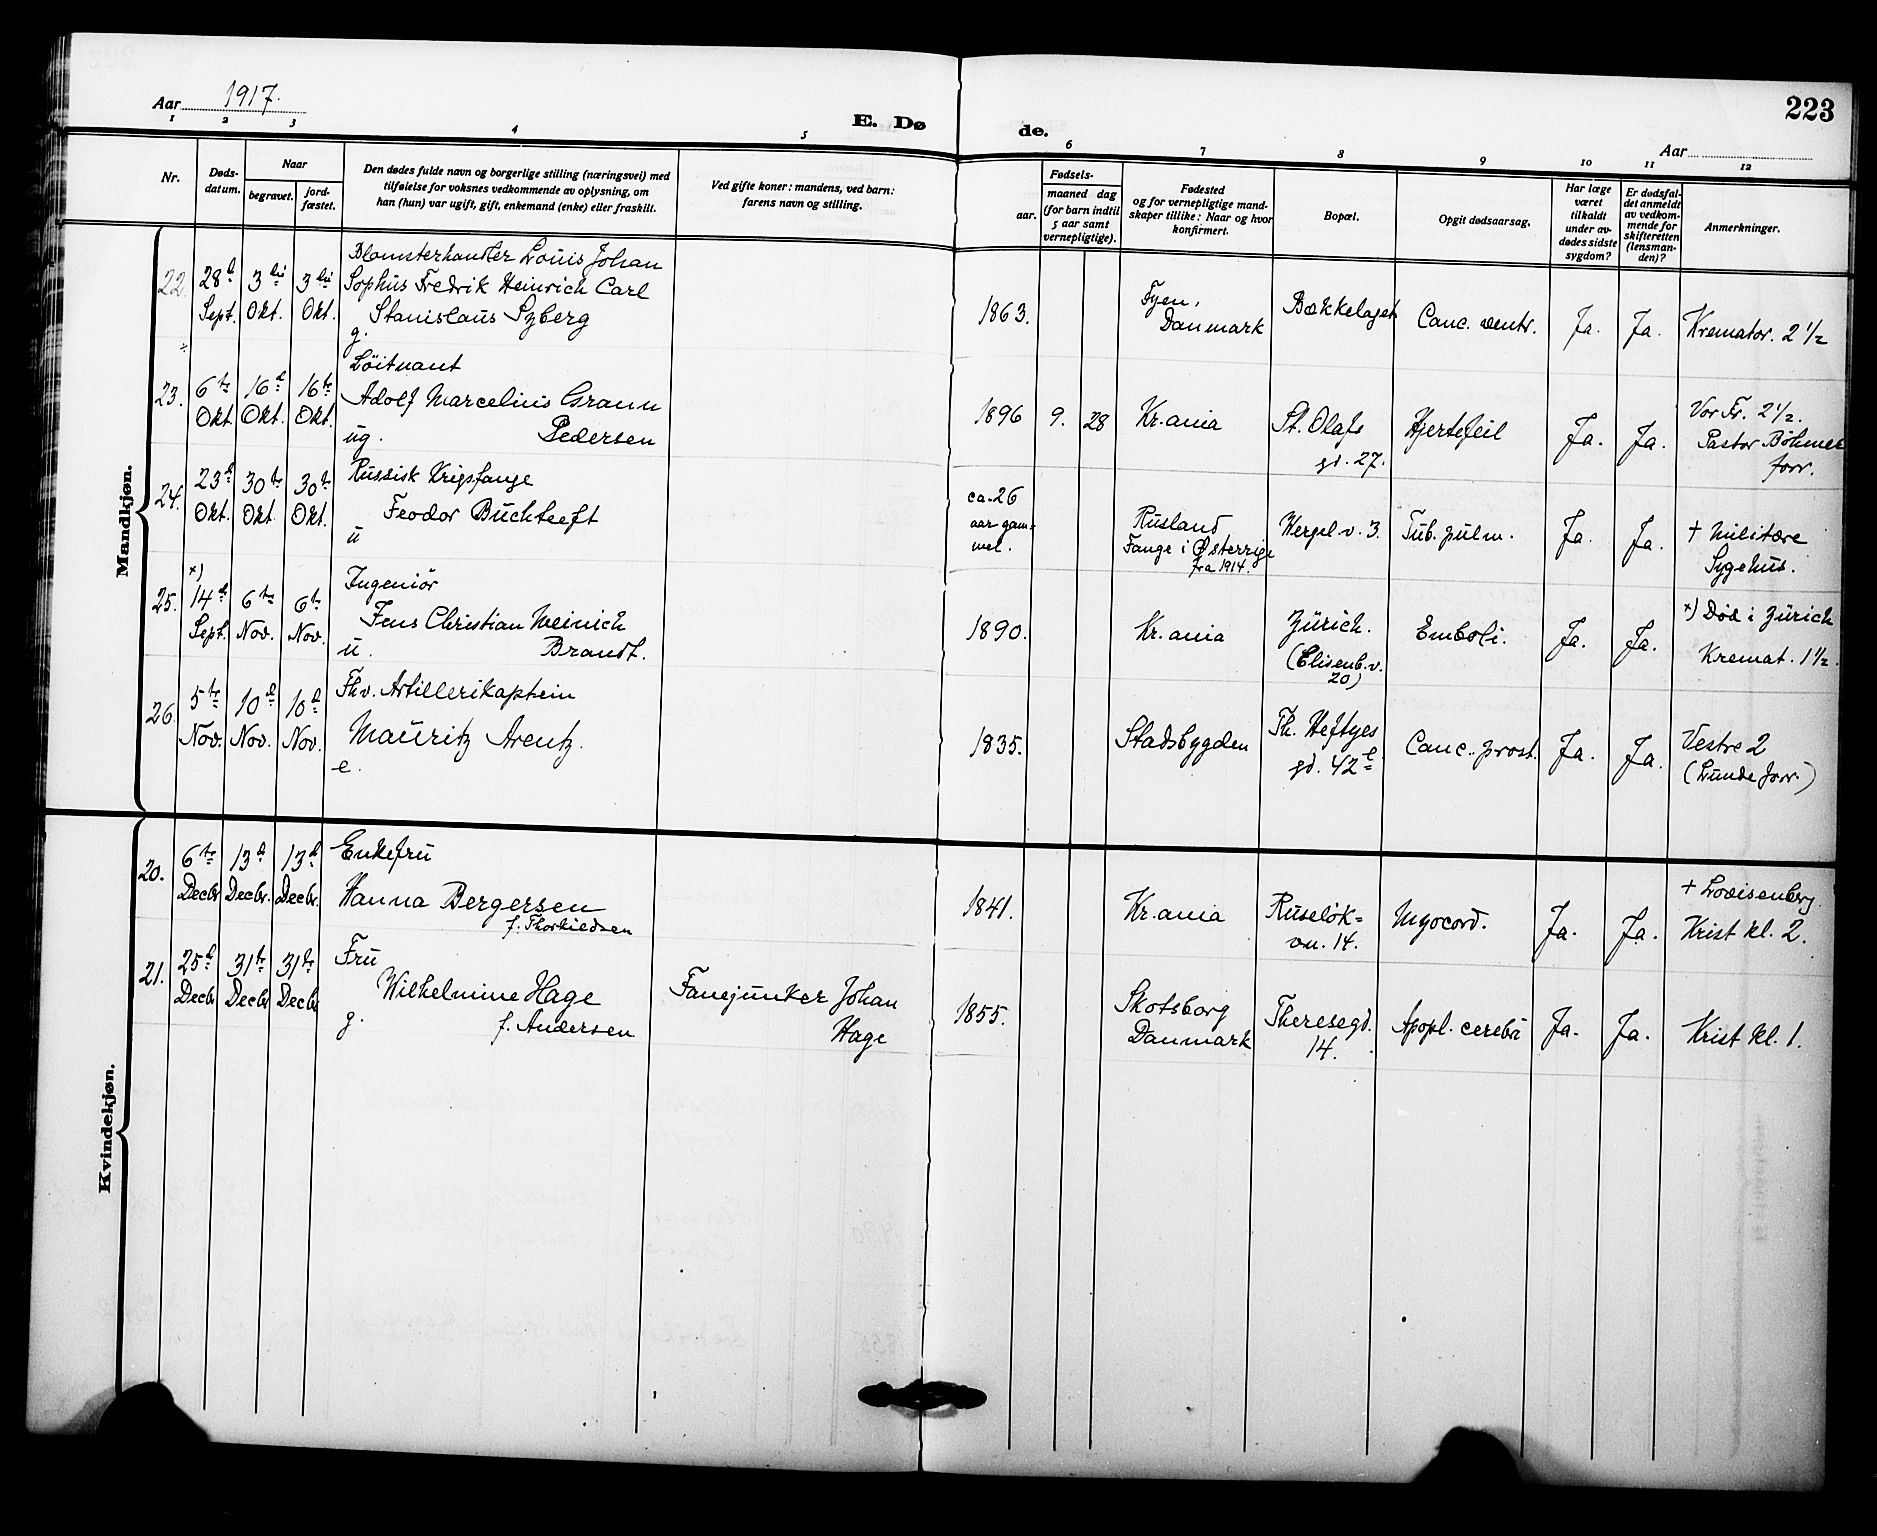 223
Aar 1917.
E. Døde.
Aar
1 2 3 4 5 6 7 8 9 10 11 12
Nr.
Døds-
datum.
Naar
begravet.
jord-
fæstet.
Den dødes fulde navn og borgerlige stilling (næringsvei) med
tilføielse for voksnes vedkommende av oplysning, om
han (hun) var ugift, gift, enkemand (enke) eller fraskilt.
Ved gifte koner: mandens, ved barn:
farens navn og stilling.
Fødsels-
aar.
maaned dag
(for barn indtil
5 aar samt
vernepligtige).
Fødested
og for vernepligtige mand-
skaper tillike: Naar og hvor
konfirmert.
Bopæl.
Opgit dødsaarsag.
Har læge
været
tilkaldt
under av-
dødes sidste
sygdom?
Er dødsfal-
det anmeldt
av vedkom-
mende for
skifteretten
(lensman-
den)?
Anmerkninger.
Mandkjøn.
22. 28d Sept. 3die Okt. 3die Okt.
Blomsterhandler Louis Johan
Sophus Fredrik Heinrich Carl
Stanislaus Syberg
g.
1863. Fyen, Danmark Bækkelaget Canc. ventr. Ja. Ja. Kremator. 2 1/2
23. 6te Okt. 16d Okt. 16te Okt.
Löitnant
Adolf Marcelius Grann
ug. Pedersen
1896 9. 28 Kr.ania St. Olafs gd. 27. Hjertefeil Ja. Ja. Vor Fr. 2 1/2.
Pastor Böhmer
forr.
24. 23d Okt. 30te Okt. 30te Okt.
Russisk Krigsfange
Feodor Buchteeft
u
ca. 26
aar gam-
mel.
Rusland
Fange i Østerrige
fra 1914.
Hergel v. 3. Tub. pulm. Ja. Ja. + Militære
Sygehus.
25. x) 14d Sept. 6te Nov. 6te Nov.
Ingeniör
Jens Christian Meinich
u. Brandt.
1890. Kr.ania Zürich.
(Elisenb.v.
20)
Emboli. Ja. Ja. x) Död i Zürich
Kremat. 1 1/2.
26. 5te Nov. 10d Nov. 10d Nov.
Fhv. Artillerikaptein
Mauritz Arentz.
e.
1835. Stadsbygden Th. Heftyes
gd. 42
Canc. prost. Ja. Ja. Vestre 2
(Lunde forr.)
Kvindekjøn.
20. 6te Decbr 13d Decbr. 13d Decbr.
Enkefru
Hanna Bergersen
f. Thorkildsen
1841. Kr.ania Ruselök-
vn. 14.
Myocord. Ja. Ja. + Lovisenberg.
Krist kl. 2.
21. 25d Decbr 31te Decbr 31te Decbr
Fru
Wilhelmine Hage
g. f. Andersen
Fanejunker Johan
Hage
1855. Skotsborg
Danmark
Theresegd.
14.
Apopl. cerebri Ja. Ja. Krist kl. 1.